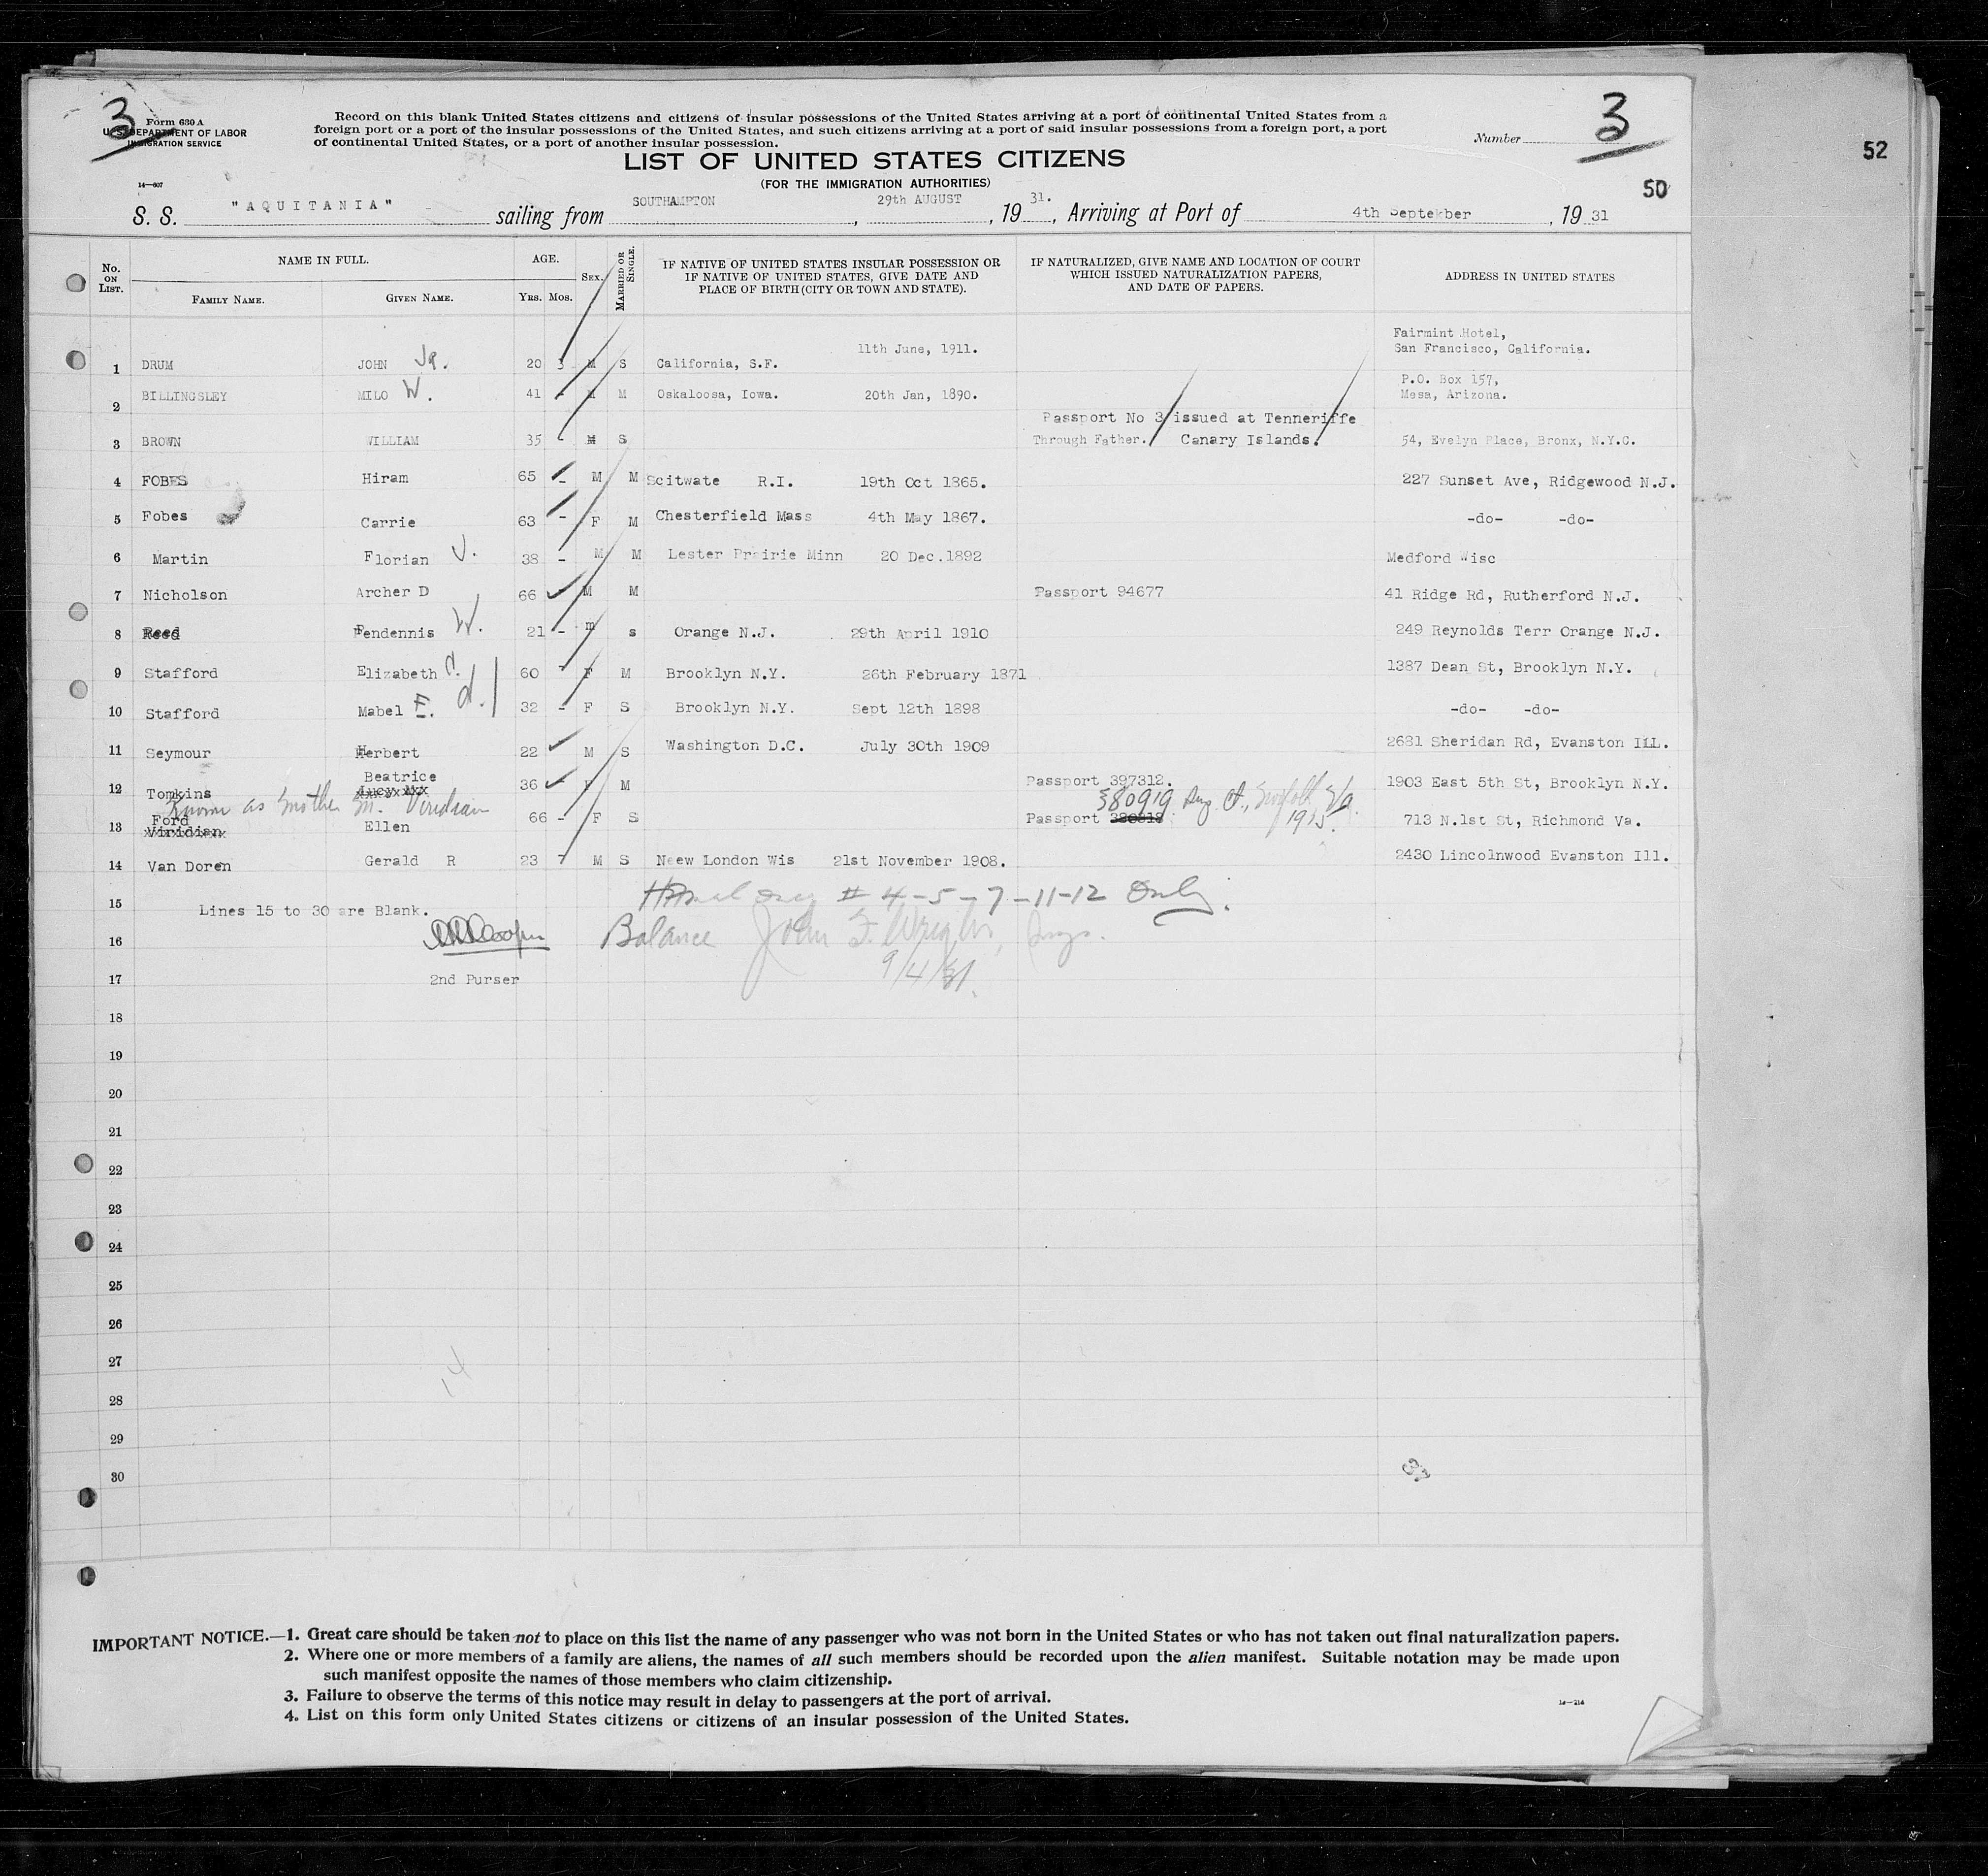 3
Form 630 A
U. S. DEPARTMENT OF LABOR
IMMIGRATION SERVICE
14—607
Record on this blank United States citizens and citizens of insular possessions of the United States arriving at a port of continental United States from a
foreign port or a port of the insular possessions of the United States, and such citizens arriving at a port of said insular possessions from a foreign port, a port
of continental United States, or a port of another insular possession.
Number 3
52
LIST OF UNITED STATES CITIZENS
(FOR THE IMMIGRATION AUTHORITIES)
50
S. S. "AQUITANIA" sailing from SOUTHAMPTON, 29th AUGUST, 19 31., Arriving at Port of 4th Septekber, 19 31
No. ON LIST. NAME IN FULL. AGE. SEX. MARRIED OR SINGLE. IF NATIVE OF UNITED STATES INSULAR POSSESSION OR IF NATIVE OF UNITED STATES, GIVE DATE AND PLACE OF BIRTH (CITY OR TOWN AND STATE). IF NATURALIZED, GIVE NAME AND LOCATION OF COURT WHICH ISSUED NATURALIZATION PAPERS, AND DATE OF PAPERS. ADDRESS IN UNITED STATES
FAMILY NAME. GIVEN NAME. YRS. MOS.
Fairmint Hotel,
1 DRUM JOHN Jr. 20 3 M S California, S.F. 11th June, 1911. San Francisco, California.
P.O. Box 157,
2 BILLINGSLEY MILO W. 41 - M M Oskaloosa, Iowa. 20th Jan, 1890. Mesa, Arizona.
Passport No 3 issued at Tenneriffe
3 BROWN WILLIAM 35 - M S Through Father. Canary Islands. 54, Evelyn Place, Bronx, N.Y.C.
4 FOBES Hiram 65 - M M Scitwate R.I. 19th Oct 1865. 227 Sunset Ave, Ridgewood N.J.
5 Fobes Carrie 63 - F M Chesterfield Mass 4th May 1867. -do- -do-
6 Martin Florian J. 38 - M M Lester Prairie Minn 20 Dec.1892 Medford Wisc
7 Nicholson Archer D 66 M M Passport 94677 41 Ridge Rd, Rutherford N.J.
8 Reed Pendennis W. 21 - m s Orange N.J. 29th April 1910 249 Reynolds Terr Orange N.J.
9 Stafford Elizabeth C. 60 - F M Brooklyn N.Y. 26th February 1871 1387 Dean St, Brooklyn N.Y.
10 Stafford Mabel E. d. 32 - F S Brooklyn N.Y. Sept 12th 1898 -do- -do-
11 Seymour Herbert 22 M S Washington D.C. July 30th 1909 2681 Sheridan Rd, Evanston ILL.
Beatrice
12 Tomkins 36 F M Passport 397312. 1903 East 5th St, Brooklyn N.Y.
Known as Mother M. Viridian
380919 Ct., Norfolk Va. 1915.
Ford
13 Viridian Ellen 66 - F S Passport 713 N.1st St, Richmond Va.
14 Van Doren Gerald R 23 - M S Neew London Wis 21st November 1908. 2430 Lincolnwood Evanston Ill.
15 Lines 15 to 30 are Blank. # 4-5-7-11-12 Only.
16 Balance John F. Insp.
9/4/31.
17 2nd Purser
18
19
20
21
22
23
24
25
26
27
14
28
29
30
37
IMPORTANT NOTICE.—1. Great care should be taken not to place on this list the name of any passenger who was not born in the United States or who has not taken out final naturalization papers.
2. Where one or more members of a family are aliens, the names of all such members should be recorded upon the alien manifest. Suitable notation may be made upon
such manifest opposite the names of those members who claim citizenship.
3. Failure to observe the terms of this notice may result in delay to passengers at the port of arrival.
4. List on this form only United States citizens or citizens of an insular possession of the United States.